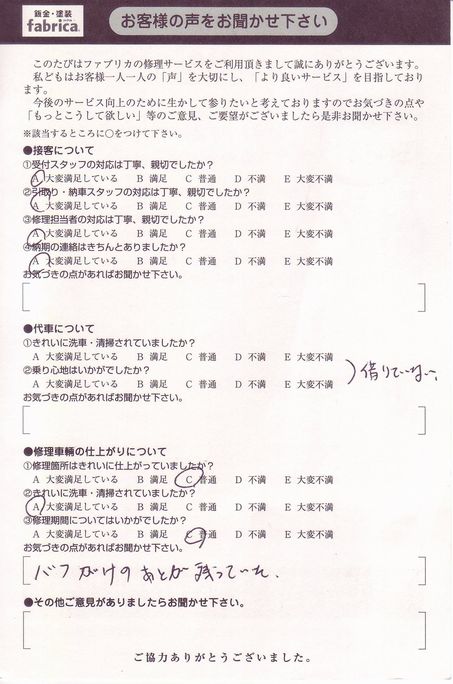 鈑金・塗装
fabrica
お客様の声をお聞かせ下さい
このたびはファブリカの修理サービスをご利用頂きまして誠にありがとうございます。
私どもはお客様一人一人の「声」を大切にし、「より良いサービス」を目指しており
ます。
今後のサービス向上のために生かして参りたいと考えておりますのでお気づきの点や
「もっとこうして欲しい」等のご意見、ご要望がございましたら是非お聞かせ下さい。
※該当するところに○をつけて下さい。
●接客について
①受付スタッフの対応は丁寧、親切でしたか？
A 大変満足している B 満足 C 普通 D 不満 E 大変不満
②引取り・納車スタッフの対応は丁寧、親切でしたか？
A 大変満足している B 満足 C 普通 D 不満 E 大変不満
③修理担当者の対応は丁寧、親切でしたか？
A 大変満足している B 満足 C 普通 D 不満 E 大変不満
④納期の連絡はきちんとありましたか？
A 大変満足している B 満足 C 普通 D 不満 E 大変不満
お気づきの点があればお聞かせ下さい。
●代車について
①きれいに洗車・清掃されていましたか？
A 大変満足している B 満足 C 普通 D 不満 E 大変不満
②乗り心地はいかがでしたか？
A 大変満足している B 満足 C 普通 D 不満 E 大変不満
借りていない。
お気づきの点があればお聞かせ下さい。
●修理車輌の仕上がりについて
①修理箇所はきれいに仕上がっていましたか？
A 大変満足している B 満足 C 普通 D 不満 E 大変不満
②きれいに洗車・清掃されていましたか？
A 大変満足している B 満足 C 普通 D 不満 E 大変不満
③修理期間についてはいかがでしたか？
A 大変満足している B 満足 C 普通 D 不満 E 大変不満
お気づきの点があればお聞かせ下さい。
バフがけのあとが残っていた。
●その他ご意見がありましたらお聞かせ下さい。
ご協力ありがとうございました。